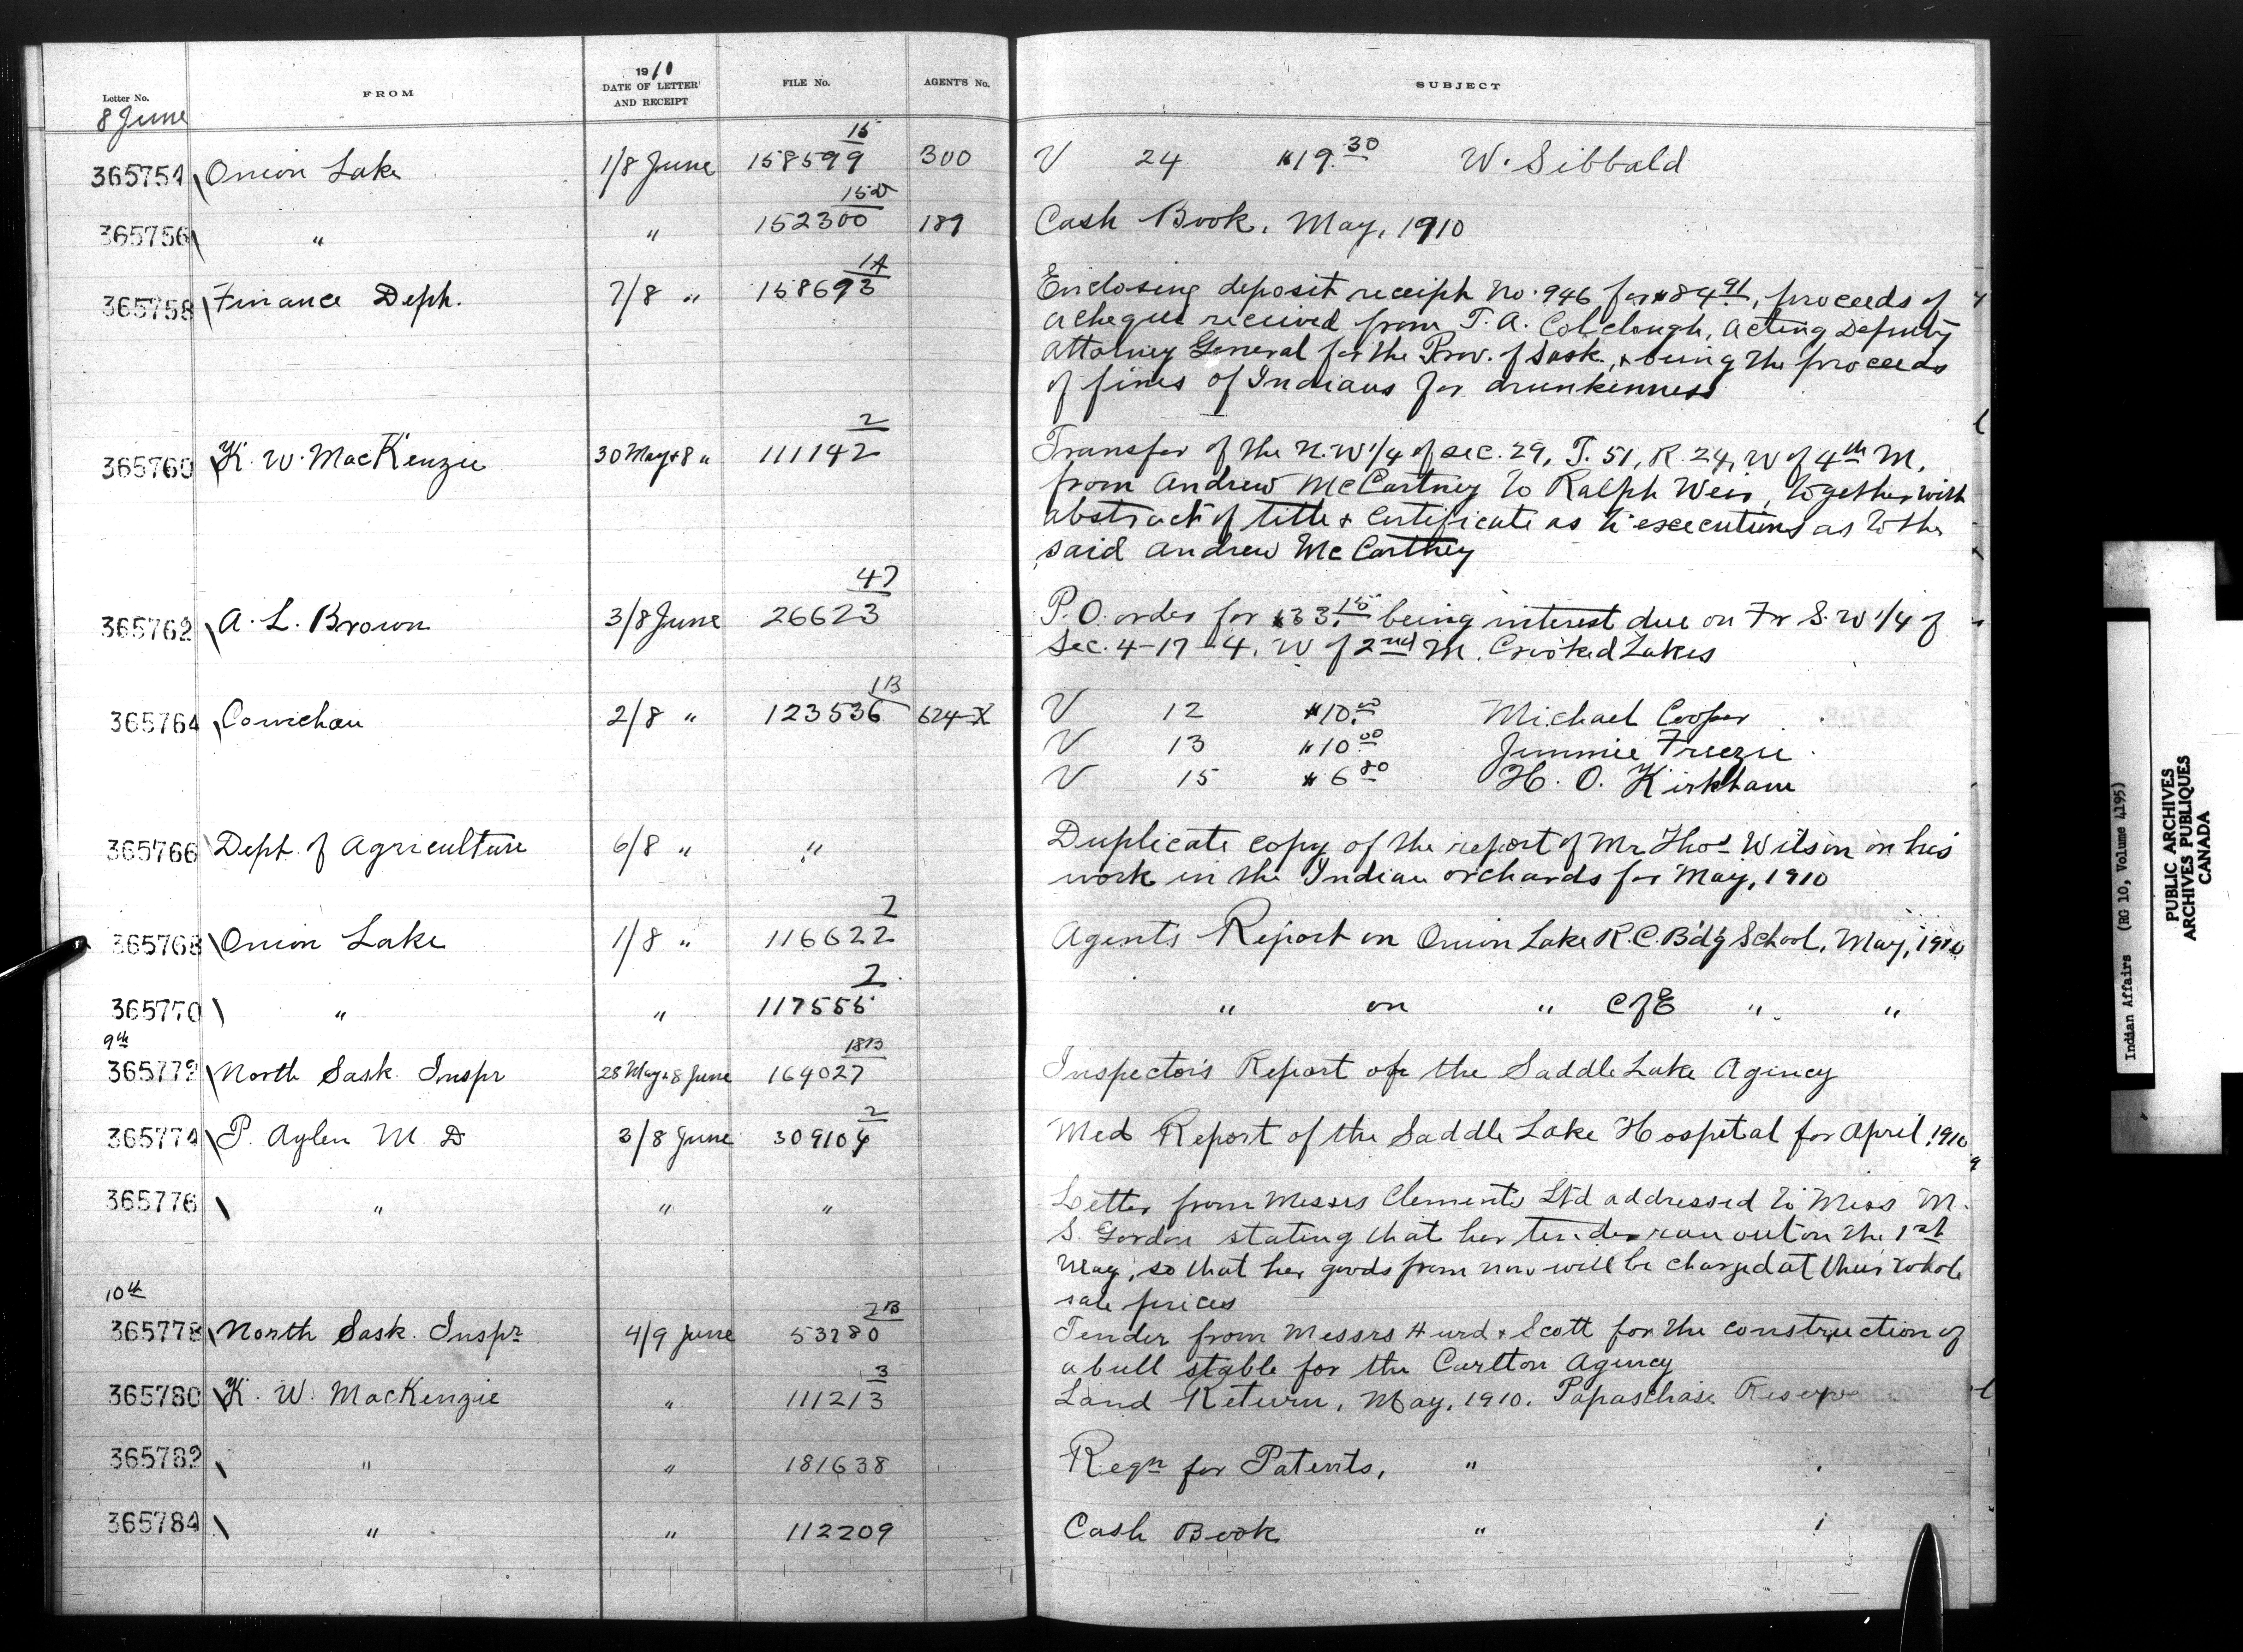 Letter No. FROM 1910 DATE OF LETTER AND RECEIPT FILE No. AGENT'S No. SUBJECT
8 June
365754 Onion Lake 1/8 June 158599 15 300 V 24 $19.30 W. Sibbald
365756 " " 152300 15D 189 Cash Book, May, 1910
365758 Finance Dept. 7/8 " 158693 1A Enclosing deposit receipt No. 946 for $84.91, proceeds of
a cheque received from T. A. Colclough, Acting Deputy
Attorney General for the Prov. of Sask., & being the proceeds
of fines of Indians for drunkenness
365760 K. W. MacKenzie 30 May & 8 " 111142 2 Transfer of the N.W 1/4 of Sec. 29, T. 51, R. 24, W of 4th M.
from Andrew McCartney to Ralph Weir, together with
abstract of title & Certificate as to executions as to the
said Andrew McCartney
365762 A. L. Brown 3/8 June 26623 47 P.O. order for $33.15 being interest due on Fr S.W 1/4 of
Sec. 4-17-4, W of 2nd M. Crooked Lakes
365764 Cowichan 2/8 " 123536 1B 624-X V 12 $10.00 Michael Cooper
V 13 $10.00 Jimmie Freezie
V 15 $6.80 H. O. Kirkham
365766 Dept. of Agriculture 6/8 " " Duplicate copy of the report of Mr Thos Wilson on his
work in the Indian orchards for May, 1910
365768 Onion Lake 1/8 " 116622 2 Agents Report on Onion Lake R.C. Bd'g School, May, 1910
365770 " " 117555 2 " on " C of E " "
9th
365772 North Sask. Inspr 28 May & 8 June 164027 18B Inspector's Report of the Saddle Lake Agency
365774 P. Aylen M. D 3/8 June 309104 2 Med Report of the Saddle Lake Hospital for April, 1910
365776 " " " Letter from Messrs Clements Ltd addressed to Miss M.
S. Gordon stating that her tender ran out on the 1st
May, so that her goods from now will be charged at their whole
sale prices
10th
365778 North Sask. Inspr 4/9 June 53280 2B Tender from Messrs Hurd & Scott for the construction of
a bull stable for the Carlton Agency
365780 K. W. MacKenzie " 111213 3 Land Return, May, 1910. Papaschase Reserve
365782 " " 181638 Regn for Patents, "
365784 " " 112209 Cash Book "
Indian Affairs (RG 10, Volume 4195)
PUBLIC ARCHIVES
ARCHIVES PUBLIQUES
CANADA